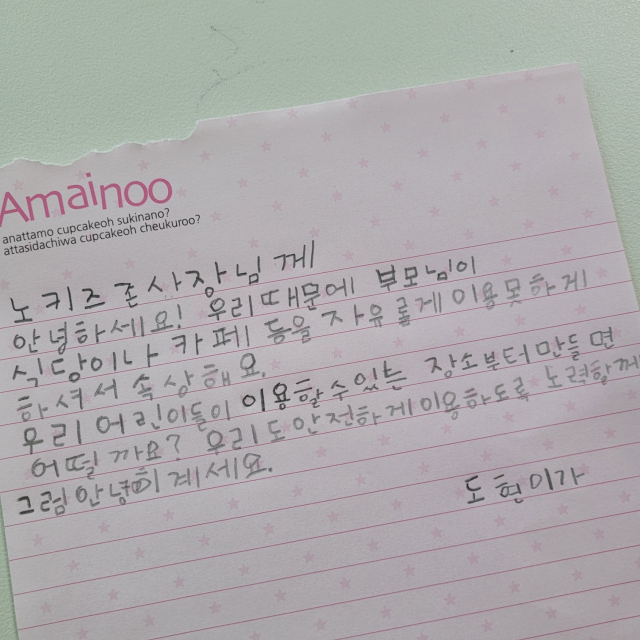 Amainoo
anattamo cupcakeoh sukinano?
attasidachiwa cupcakeoh cheukuroo?
노키즈 존 사장님께
안녕하세요! 우리때문에 부모님이
식당이나 카페 등을 자유롭게 이용못하게
하셔서 속상해요.
우리 어린이들이 이용할 수 있는 장소부터 만들면
어떨까요? 우리도 안전하게 이용하도록 노력할께요
그럼 안녕히 계세요.
도현이가